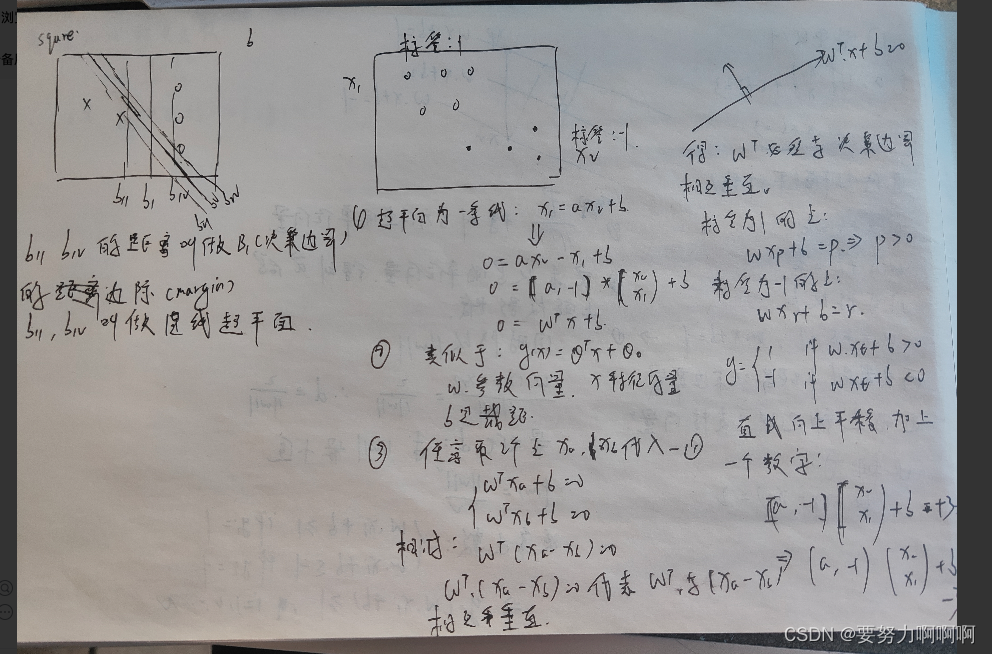 浏
备
squre.
b
b₁₁ b₁ b₁₂
b₁₁ b₁₂ 的距离叫做B₁(决策边界)
的边际(margin)
b₁₁, b₁₂ 叫做 超平面.
标签:1
x₁
标签:-1
x₂
① 超平面为一条线: x₁=ax₂+b
⇓
0=ax₂-x₁+b
0 = [a,-1] * (x₂ x₁) + b
0 = wᵀx+b
② 类似于: g(x)=θᵀx+θ₀
w:参数向量. x特征向量
b是截距.
③ 任意取2个点 xa, xb代入-①
{ wᵀxa+b=0
wᵀxb+b=0
相减: wᵀ(xa-xb)=0
wᵀ·(xa-xb)=0 代表 wᵀ与(xa-xb)
相互垂直.
wᵀ·x+b=0
得: wᵀ 与决策边界
相互垂直.
标签为1的点:
wxp+b=p ⇒ p>0
标签为-1的点:
wxr+b=r.
y={ 1 if w·xt+b>0
-1 if wxt+b<0
直线向上平移,加上
一个数字:
[a,-1] (x₂ x₁) +b=+3
⇒ (a,-1) (x₂ x₁)
CSDN @要努力啊啊啊